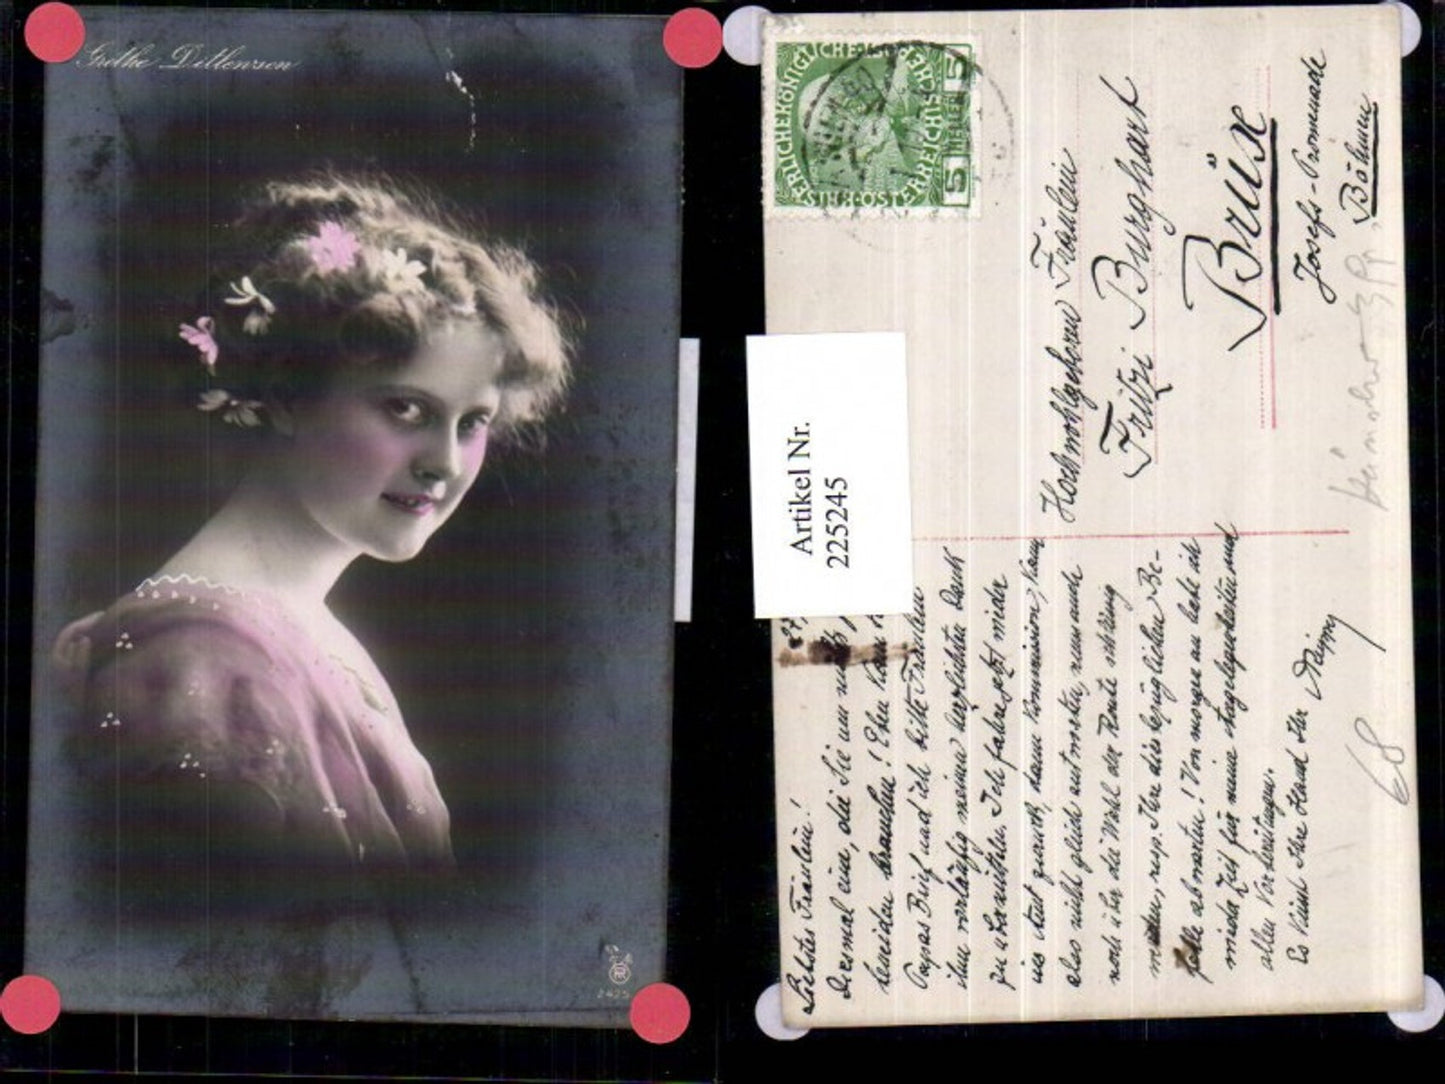 Grethe Ditlensen
2425
KAISERLICHEKÖNIGLICHEÖSTERREICHISCHE
5 HELLER 5
Artikel Nr.
225245
Hochwohlgeboren Fräulein
Fritzi Burghart
Brüx
Josefs-Promenade
Böhmen
68
Liebstes Fräulein!
Diesmal eine, die Sie um nichts
beneiden brauchen! Eben kam
Papas Brief und ich bitte Fräulein
ihm vorläufig meinen herzlichsten Dank
zu übermitteln. Ich fahre jetzt wieder
ins Amt zurück, dann Kommission, kann
also nicht gleich antworten, nun auch
noch über die Wahl der Route schlüssig
werden, resp. Ihre diesbezüglichen Be-
fehle abwarten! Von morgen an habe ich
wieder Zeit für meine Angelegenheiten und
allen Vorbereitungen.
Es küsst Ihre Hand Ihr